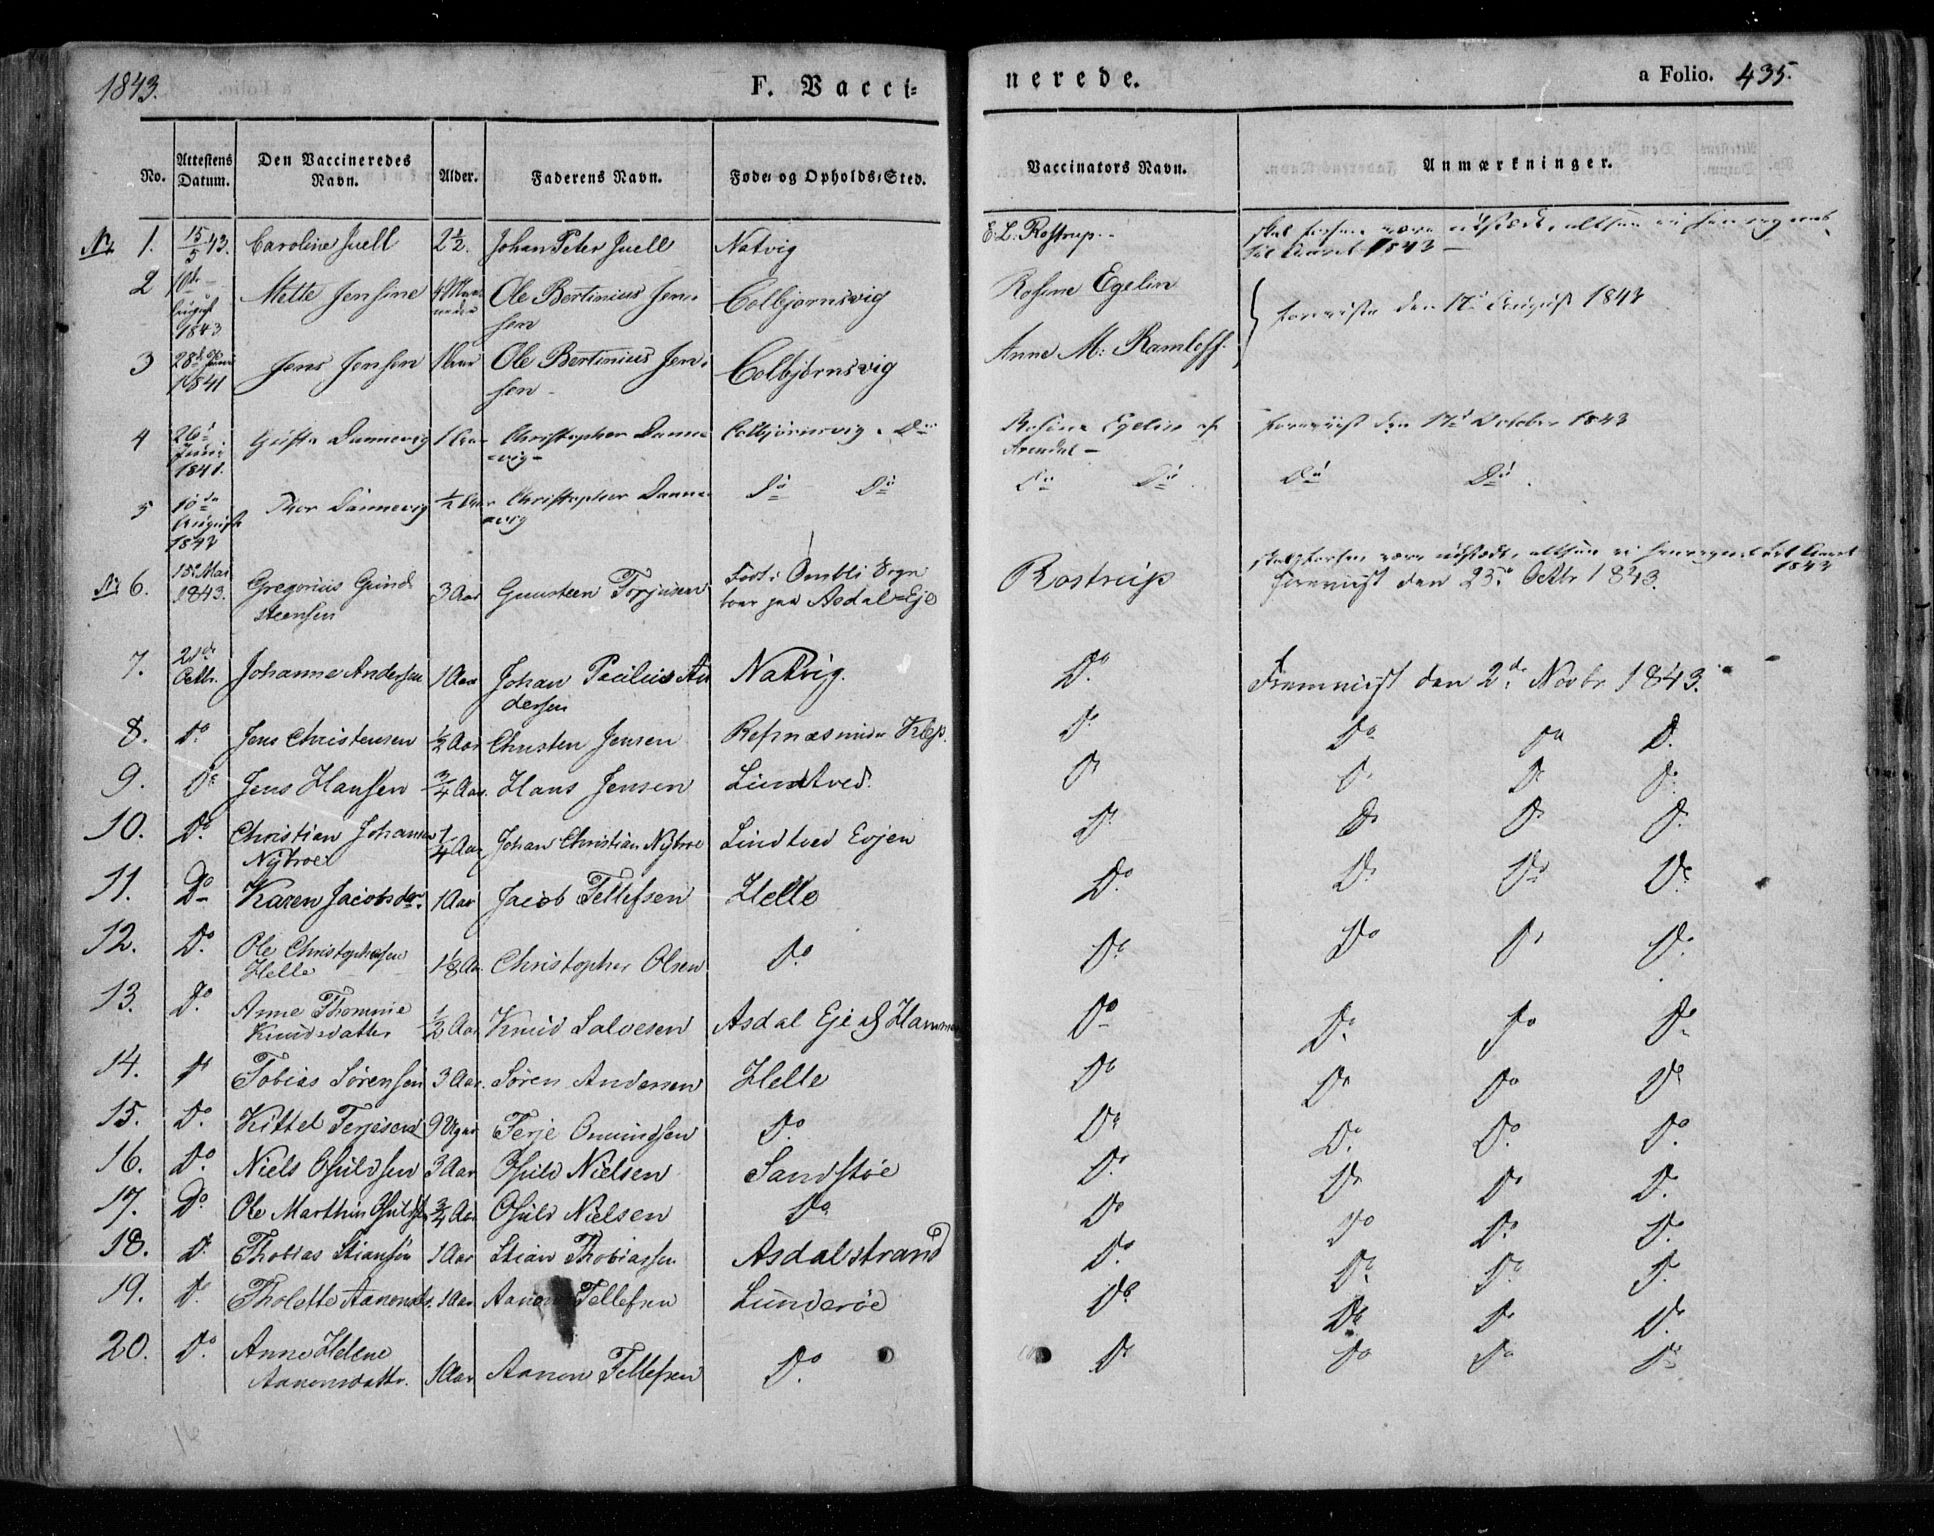 1843. F. Vacci= nerede. a Folio. 435.
No. Attestens Datum. Den Vaccineredes Navn. Alder. Faderens Navn. Føde- og Opholds-Sted. Vaccinators Navn. Anmærkninger.
1. 15/5 43. Caroline Juell 2½. Johan Peter Juell Natvig E. L. Rostrup.
1843
2 10de August 1843 Mette Jensine Ole Bertinius Jensen Colbjørnsvig Rosine Egelin
den 17 August 1843
3 28de 1841 Jens Jensen 1 Aar Ole Bertinius Jensen Colbjørnsvig Anne M: Ramloff.
4 26 Juni 1841. Dannevig 1 Aar Christopher Dannevig Colbjørnsvig Do Rosine Egelin af Arendal den 17 October 1843
5 10de August 1843 Thor Dannevig ½ Aar Christopher Dannevig Do Do Do Do Do Do
No 6. 15 Mai 1843. Gregorius Gundsteensen 3 Aar Gunsteen Terjusen Født i Ombli Sogn boer paa Asdal Eje Rostrup 1843
Fremviist den 23 Octbr 1843.
7. Octbr. Johanne Andersen 1 Aar Johan Paulius Andersen Natvig. Do Fremviist den 2de Novbr 1843.
8. Do Jens Christensen ½ Aar Christen Jensen Refnæs Do Do Do D.
9. Do Jens Hansen ¾ Aar. Hans Jensen Lindtved. Do Do Do Do
10. Do Christian Johannes Nÿbroe ¼ Aar Johan Christian Nÿbroe Lindtved Eyjen Do Do Do Do
11. Do Karen Jacobsdr. 1 Aar Jacob Tellefsen Helle Do Do Do Do
12. Do Ole Christophersen Helle 1⅛ Aar Christopher Olsen Do Do Do Do Do
13. Do Anne Thomine Knudsdatter ½ Aar Knud Salvesen Asdal Eje Do Do Do Do
14. Do Tobias Sørensen 3 Aar. Søren Andersen Helle Do Do Do Do
15. Do Kittel Terjesen 9 Uger Terje Omundsen Do Do Do Do Do
16. Do Niels Osuldsen 3 Aar Osuld Nielsen Sandstøe Do Do Do Do
17. Do Ole Marthin Osuldsen ¾ Aar Osuld Nielsen Do Do Do Do Do
18. Do Thobias Stiansen 1 Aar Stian Thobiassen Asdalstrand Do Do Do Do
19. Do Tholette Aanonsd. 1 Aar Aanon Tellefsen Lunderøe Do Do Do Do
20. Do Anne Helene Aanonsdattr. 1 Aar Aanon Tellefsen Do Do Do Do Do